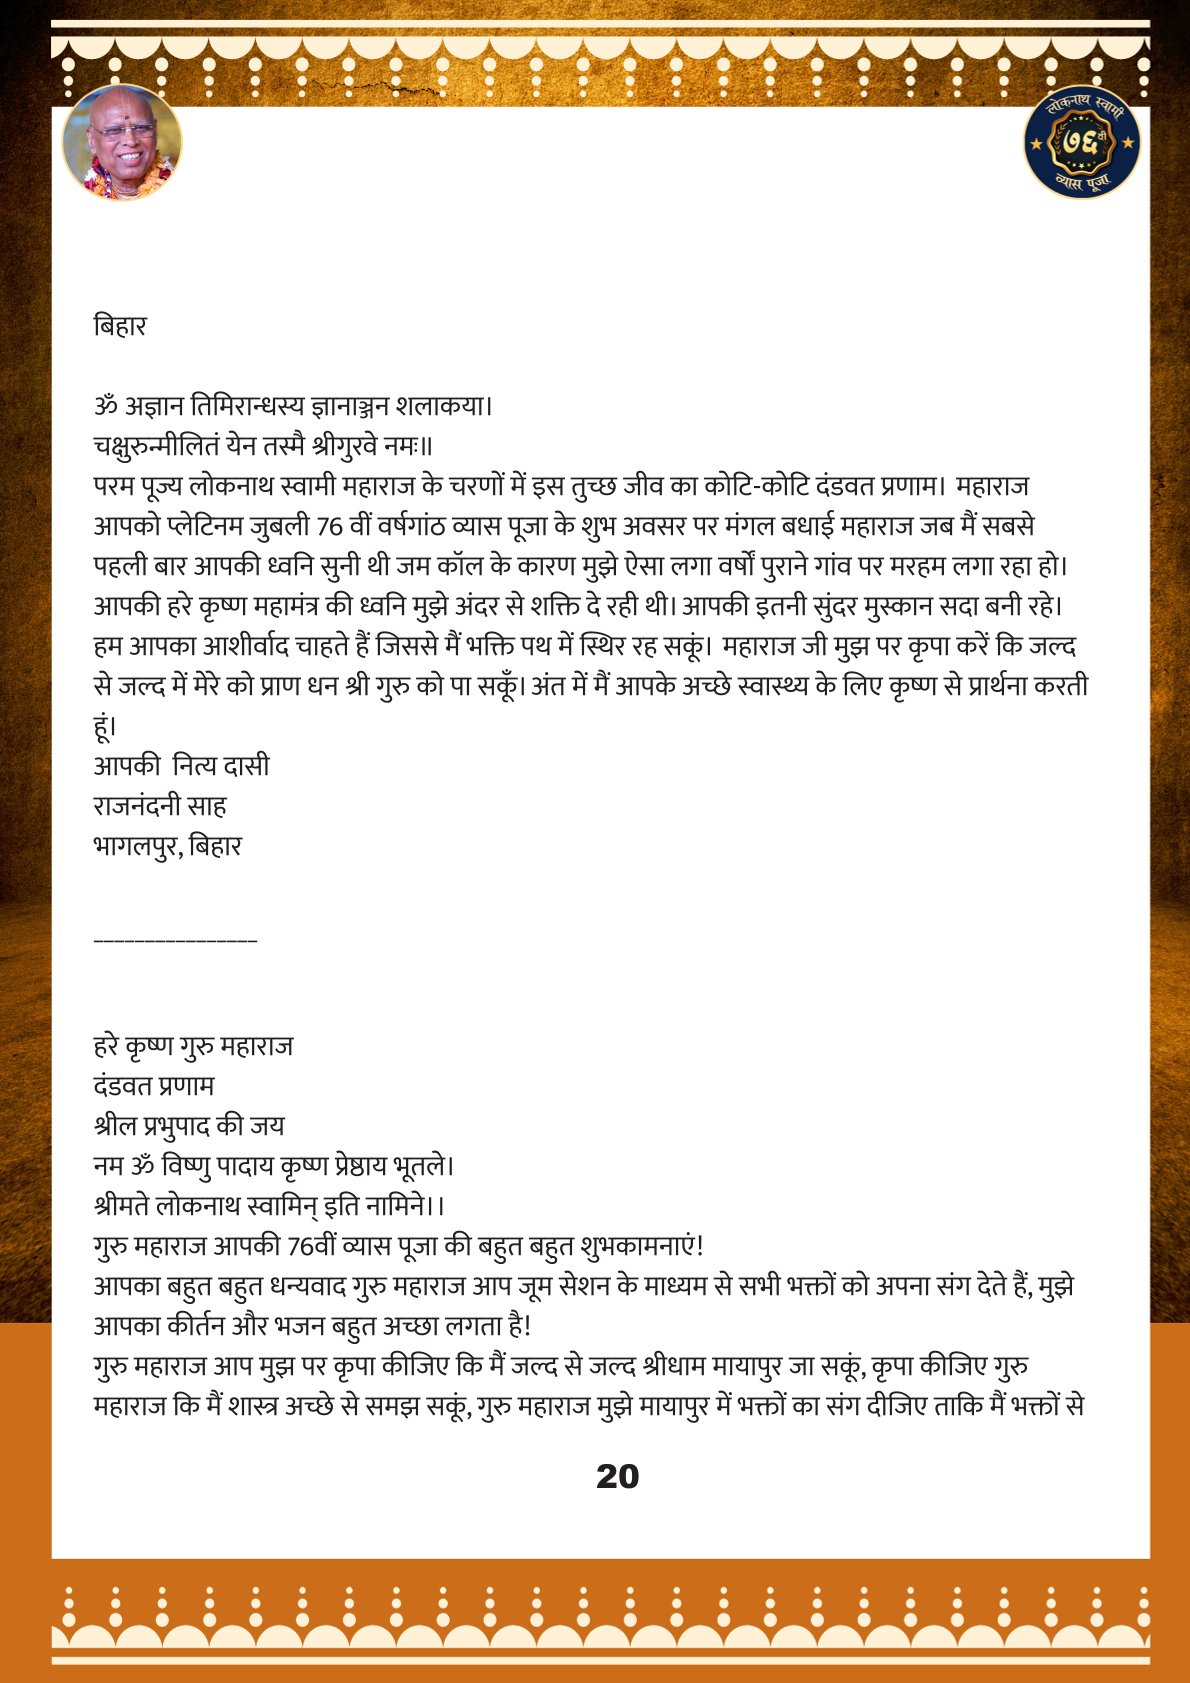 लोकनाथ स्वामी
७६वीं
व्यास पूजा
बिहार
ॐ अज्ञान तिमिरान्धस्य ज्ञानाञ्जन शलाकया।
चक्षुरुन्मीलितं येन तस्मै श्रीगुरवे नमः॥
परम पूज्य लोकनाथ स्वामी महाराज के चरणों में इस तुच्छ जीव का कोटि-कोटि दंडवत प्रणाम। महाराज
आपको प्लेटिनम जुबली 76 वीं वर्षगांठ व्यास पूजा के शुभ अवसर पर मंगल बधाई महाराज जब मैं सबसे
पहली बार आपकी ध्वनि सुनी थी जम कॉल के कारण मुझे ऐसा लगा वर्षों पुराने गांव पर मरहम लगा रहा हो।
आपकी हरे कृष्ण महामंत्र की ध्वनि मुझे अंदर से शक्ति दे रही थी। आपकी इतनी सुंदर मुस्कान सदा बनी रहे।
हम आपका आशीर्वाद चाहते हैं जिससे मैं भक्ति पथ में स्थिर रह सकूं। महाराज जी मुझ पर कृपा करें कि जल्द
से जल्द में मेरे को प्राण धन श्री गुरु को पा सकूँ। अंत में मैं आपके अच्छे स्वास्थ्य के लिए कृष्ण से प्रार्थना करती
हूं।
आपकी नित्य दासी
राजनंदनी साह
भागलपुर, बिहार
________________
हरे कृष्ण गुरु महाराज
दंडवत प्रणाम
श्रील प्रभुपाद की जय
नम ॐ विष्णु पादाय कृष्ण प्रेष्ठाय भूतले।
श्रीमते लोकनाथ स्वामिन् इति नामिने।।
गुरु महाराज आपकी 76वीं व्यास पूजा की बहुत बहुत शुभकामनाएं!
आपका बहुत बहुत धन्यवाद गुरु महाराज आप जूम सेशन के माध्यम से सभी भक्तों को अपना संग देते हैं, मुझे
आपका कीर्तन और भजन बहुत अच्छा लगता है!
गुरु महाराज आप मुझ पर कृपा कीजिए कि मैं जल्द से जल्द श्रीधाम मायापुर जा सकूं, कृपा कीजिए गुरु
महाराज कि मैं शास्त्र अच्छे से समझ सकूं, गुरु महाराज मुझे मायापुर में भक्तों का संग दीजिए ताकि मैं भक्तों से
20